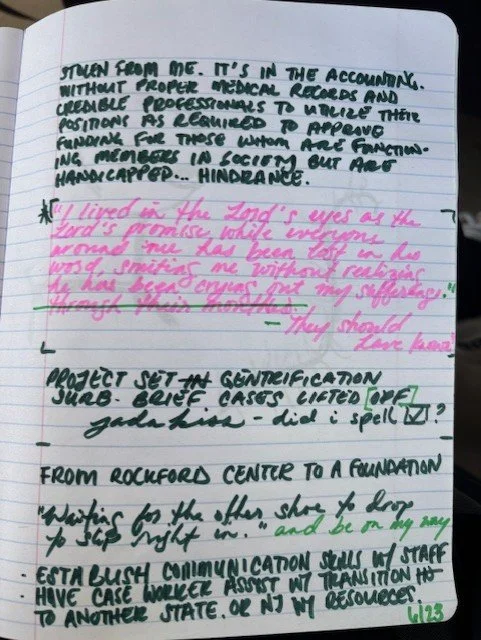 STOLEN FROM ME. IT'S IN THE ACCOUNTING.
WITHOUT PROPER MEDICAL RECORDS AND
CREDIBLE PROFESSIONALS TO UTILIZE THEIR
POSITIONS AS REQUIRED TO APPROVE
FUNDING FOR THOSE WHOM ARE FUNCTION-
ING MEMBERS IN SOCIETY BUT ARE
HANDICAPPED... HINDRANCE.
*"I lived in the Lord's eyes as the
Lord's promise while everyone
around me has been lost in his
word, smiting me without realizing
he has been crying out my sufferings."
through their mouths.
- They should
have known"
PROJECT SET GENTRIFICATION
SURB. BRIEF CASES LIFTED [OFF]
jadakiss - did i spell ☑?
FROM ROCKFORD CENTER TO A FOUNDATION
"Waiting for the other shoe to drop
to slip right in." and be on my way
ESTABLISH COMMUNICATION SKILLS W/ STAFF
· HAVE CASE WORKER ASSIST W/ TRANSITION
TO ANOTHER STATE. OR NJ W/ RESOURCES.
6/23